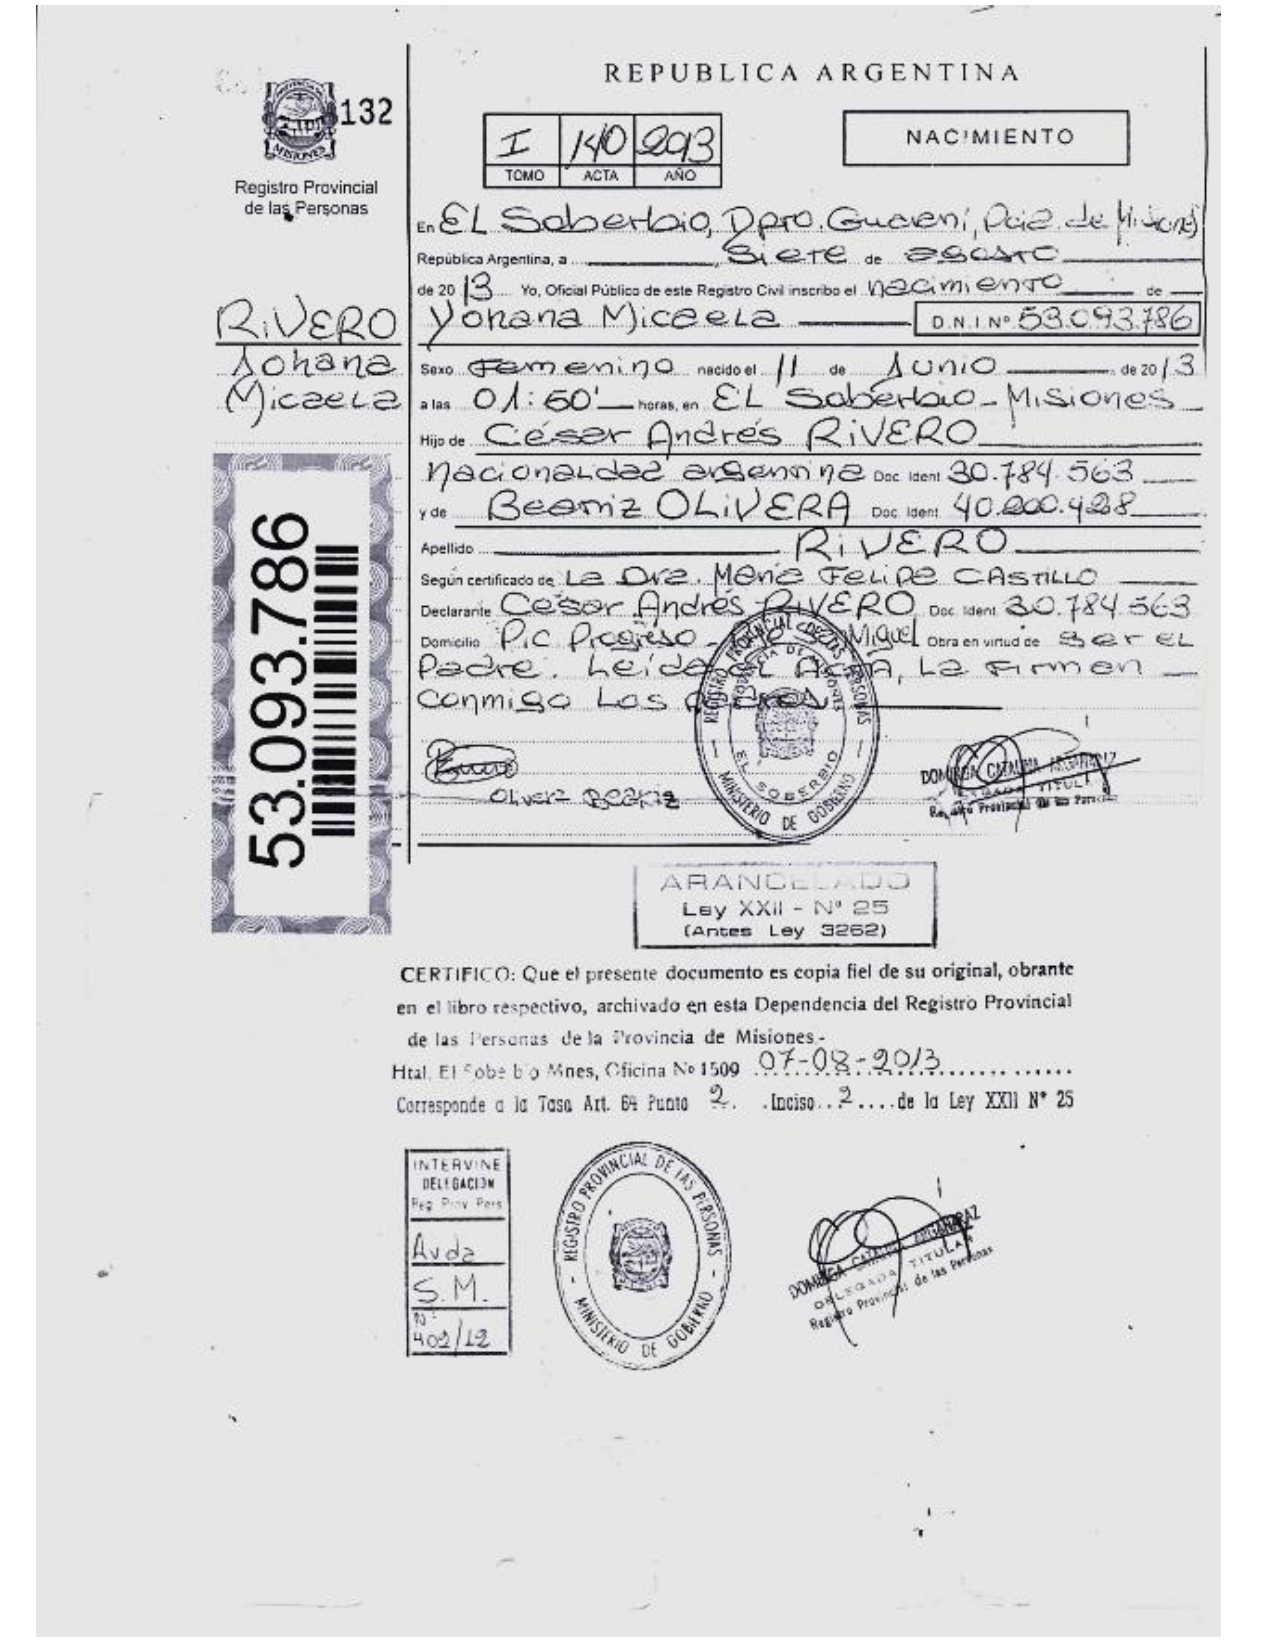 REPUBLICA ARGENTINA
132
MISIONES
Registro Provincial
de las Personas
I 140 2013
TOMO ACTA AÑO
NACIMIENTO
En EL Soberbio, Dpto. Guarani, Pcia. de Misiones
República Argentina, a siete de agosto
de 2013 Yo, Oficial Público de este Registro Civil inscribo el nacimiento de
Yohana Micaela D.N.I Nº 53.093.786
RIVERO
Yohana
Micaela
Sexo Femenino nacido el 11 de Junio de 2013
a las 01:50' horas, en EL Soberbio - Misiones
Hijo de César Andrés RIVERO
nacionalidad argentina Doc. Ident. 30.784.563
y de Beatriz OLIVERA Doc. Ident. 40.200.428
Apellido RIVERO
Según certificado de La Dra. María Felipa CASTILLO
Declarante César Andrés RIVERO Doc. Ident. 30.784.563
Domicilio Pic. Progreso Miguel Obra en virtud de ser el
Padre. Leída el Acta, La firman
conmigo Los padres
53.093.786
Olivera Beatriz
REGISTRO PROVINCIAL DE LAS PERSONAS
PROVINCIA DE MISIONES
EL SOBERBIO
MINISTERIO DE GOBIERNO
DOMINGA CATALINA ARGAÑARAZ
DELEGADA TITULAR
Registro Provincial de las Personas
ARANCELADO
Ley XXII - Nº 25
(Antes Ley 3262)
CERTIFICO: Que el presente documento es copia fiel de su original, obrante
en el libro respectivo, archivado en esta Dependencia del Registro Provincial
de las Personas de la Provincia de Misiones.-
Htal. El Soberbio Mnes, Oficina Nº 1509 07-08-2013
Corresponde a la Tasa Art. 64 Punto 2. Inciso 2 de la Ley XXII N° 25
INTERVINE
DELEGACION
Reg. Prov. Pers.
Avda
S.M.
Nº
402/12
REGISTRO PROVINCIAL DE LAS PERSONAS
MINISTERIO DE GOBIERNO
DOMINGA CATALINA ARGAÑARAZ
DELEGADA TITULAR
Registro Provincial de las Personas